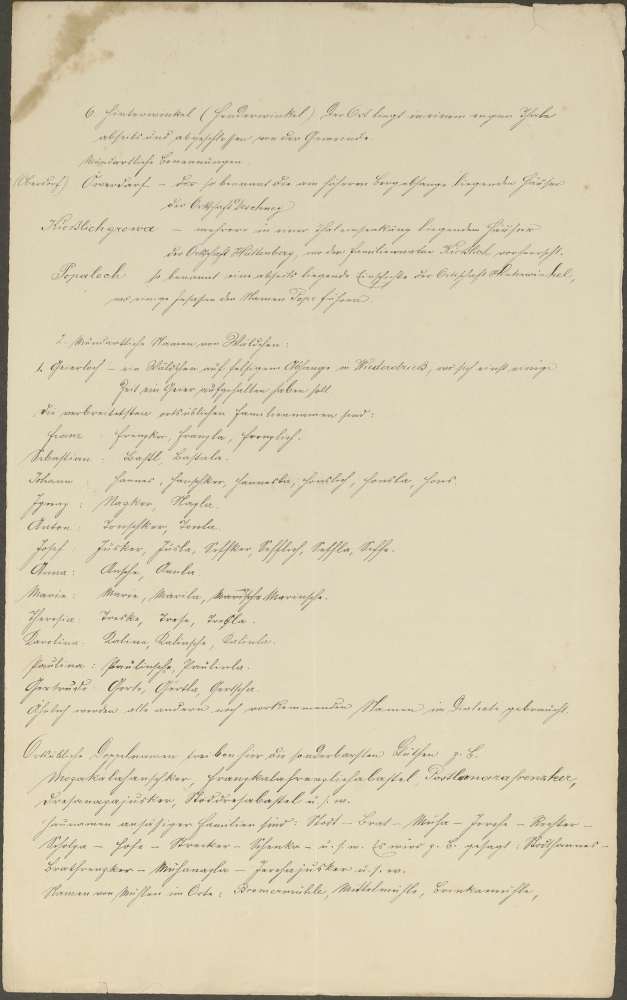 6. Hinterwinkel (Hinderwinkel) Der Ort liegt in einem engen Thale
abseits und abgeschlossen von der Gemeinde.
Mundartliche Benennungen.
(Oberdorf) Overdorf – der so benannt die am höheren Bergabhange liegenden Häuser
der Ortschaft
Kieslichgrowa – mehrere in einer Thaleinsenkung liegenden Häuser
der Ortschaft Hüttenberg, wo der Familienname Kieslich vorherrscht.
Popaloch so benannt eine abseits liegende Einschichte der Ortschaft Hinterwinkel,
wo einige Insassen den Namen Pope führen.
2. Mundartliche Namen von Wäldchen:
1. Geierloch – ein Wäldchen auf felsigem Abhange in Niederdorf, wo sich einst einige
Zeit ein Geier aufgehalten haben soll.
Die verbreitetsten ortsüblichen Familiennamen sind:
Franz : Frenzker, Franzla, Frenzlich.
Sebastian : Bastl, Bastala.
Johann : Hannes, Hanschker, Hannesla, Honslich, Honsla, Hons.
Ignaz : Nazker, Nazla.
Anton : Tonschker, Tonla.
Josef : Jusker, Jusla, Seffker, Sefflich, Seffla, Seffe.
Anna : Ansche, Annla
Marie : Marie, Marila, Marinsche.
Theresia : Treska, Trese, Tresla.
Karolina : Kaline, Kalinsche, Kalinla.
Paulina : Paulinsche, Paulinla.
Gertrude : Gerte, Gertla, Gertscha.
Ähnlich werden alle andern noch vorkommenden Namen im Dialecte gebraucht.
Ortsübliche Doppelnamen treiben hier die sonderbarsten Blüthen z. B.
Mozakalahanschker, Franzkalafrenzlichabastel, Postlonazafrenzker,
Dresanazajusker, Stosdresabastel u. s. w.
Hausnamen ansäßiger Familien sind: Stost – Brat – Muha – Jerche – Richter –
Scholza – Hofe – Strecker – Schenka – u. s. w. Es wird z. B. gesagt: Stosthannes –
Bratfrenzker – Muhanazla – Jerchajusker u. s. w.
Namen von Mühlen im Orte: Bremermühle, Mittelmühle, Brinkamühle,